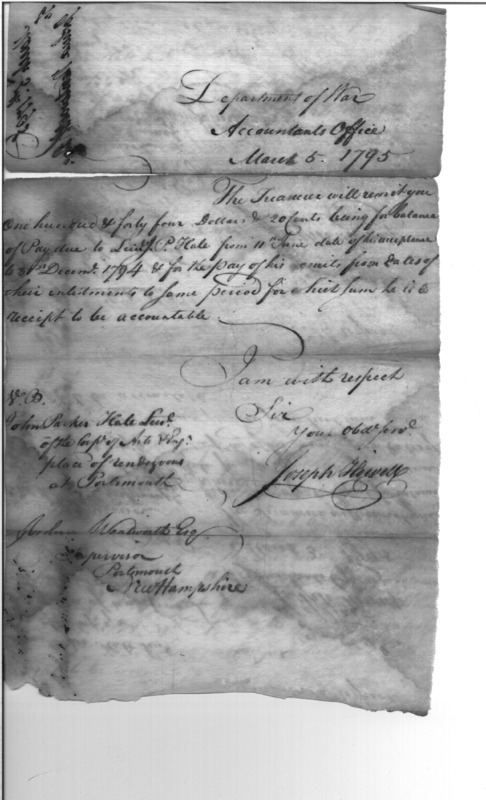 Department of War
Accountants Office
March 5. 1795
The Treasurer will remit you
One hundred & forty four Dollars & 20 Cents being for balance
of Pay due to Lieut J. P. Hale from 11th June date of his acceptance
to 31st Decemr. 1794 & for the pay of his recruits from dates of
their inlistments to same period for which sum he is to
receipt to be accountable
I am with respect
Sir
Your Obdt. Servt.
Joseph Howell
N.B.
John Parker Hale Lieut.
of the Corps of Arts & Engs.
place of rendezvous
at Portsmouth
Joshua Wentworth Esq.
Supervisor
Portsmouth
New Hampshire